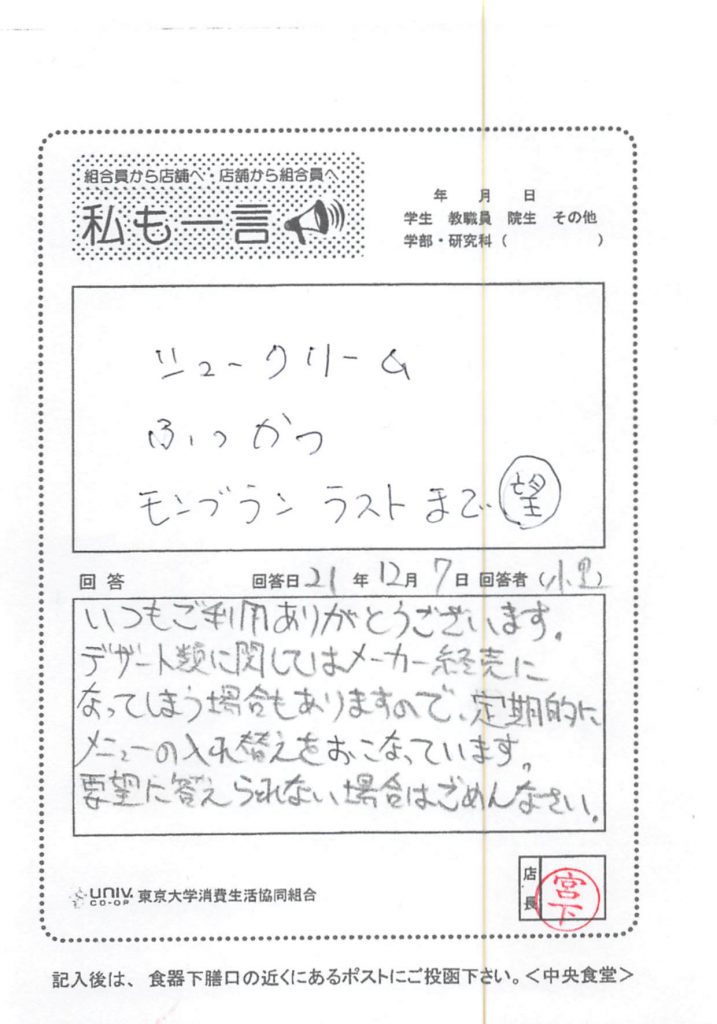 組合員から店舗へ・店舗から組合員へ
私も一言
年 月 日
学生 教職員 院生 その他
学部・研究科 ( )
シュークリーム
ふっかつ
モンブラン ラストまで 望
回答 回答日 21 年 12月 7日 回答者 (小里)
いつもご利用ありがとうございます。
デザート類に関してはメーカー終売に
なってしまう場合もありますので、定期的に
メニューの入れ替えをおこなっています。
要望に答えられない場合はごめんなさい。
店長
宮下
UNIV. CO-OP 東京大学消費生活協同組合
記入後は、食器下膳口の近くにあるポストにご投函下さい。<中央食堂>